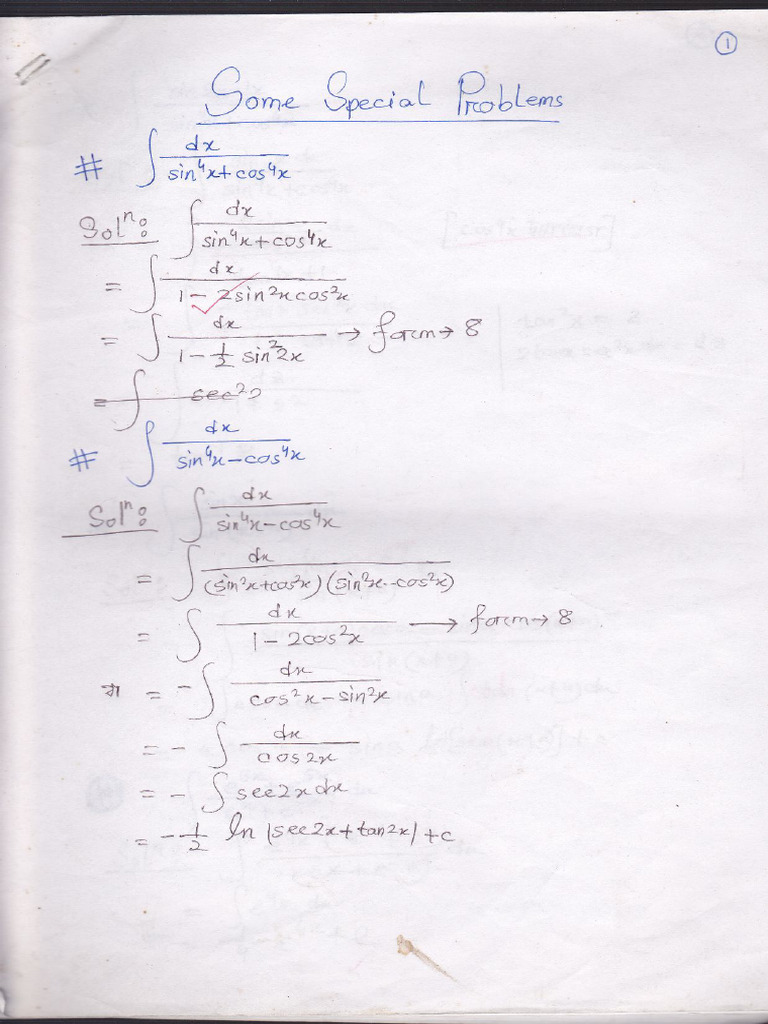 1
Some Special Problems
# ∫ dx / (sin⁴x + cos⁴x)
Solⁿ: ∫ dx / (sin⁴x + cos⁴x)
= ∫ dx / (1 − 2sin²x cos²x)
= ∫ dx / (1 − ½ sin²2x) → form → 8
= ∫ sec²
# ∫ dx / (sin⁴x − cos⁴x)
Solⁿ: ∫ dx / (sin⁴x − cos⁴x)
= ∫ dx / (sin²x + cos²x)(sin²x − cos²x)
= ∫ dx / (1 − 2cos²x) → form → 8
= −∫ dx / (cos²x − sin²x)
= − ∫ dx / cos2x
= − ∫ sec2x dx
= −½ ln |sec2x + tan2x| + c